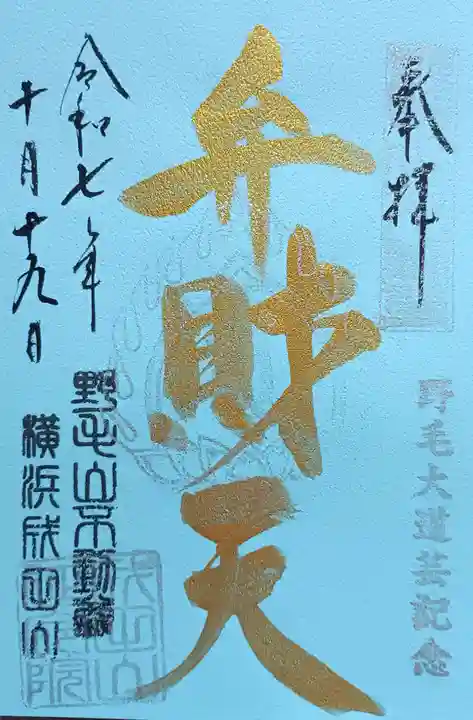 奉拝
野毛大道芸記念
弁財天
令和七年
十月十九日
野毛山不動尊
横浜成田山